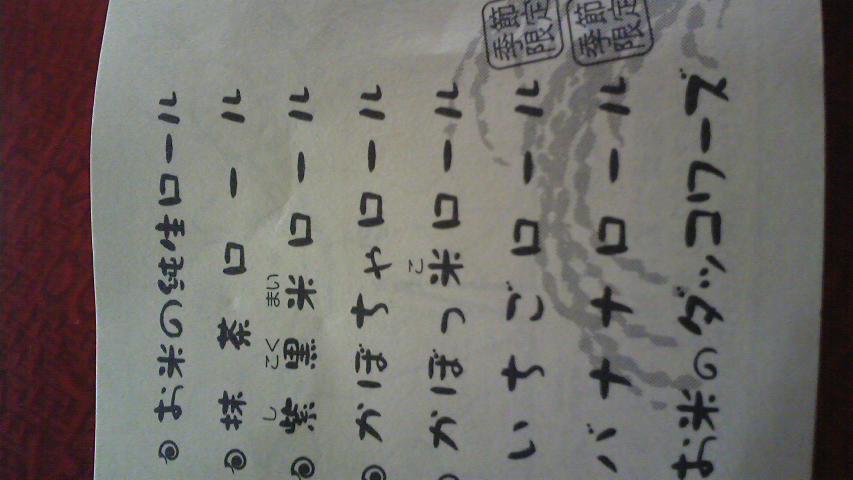 お米の純生ロール
抹茶ロール
し こく まい
紫黒米ロール
かぼちゃロール
こ
かぼっ米ロール
いちごロール
季節
限定
バナナロール
季節
限定
お米のダッコワーズ